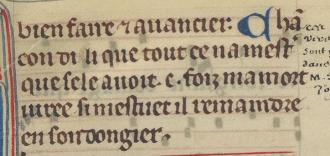 bien faire ⁊ auancier. Chã
con di li que tout ce na mest
que se le auoit .c. foiz ma mort
iuree si mestuet il remaindre
en son dongier.